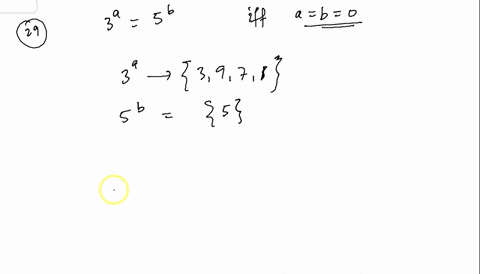 29 3^a = 5^b iff a = b = 0
3^a → {3, 9, 7, 1}
5^b = {5}